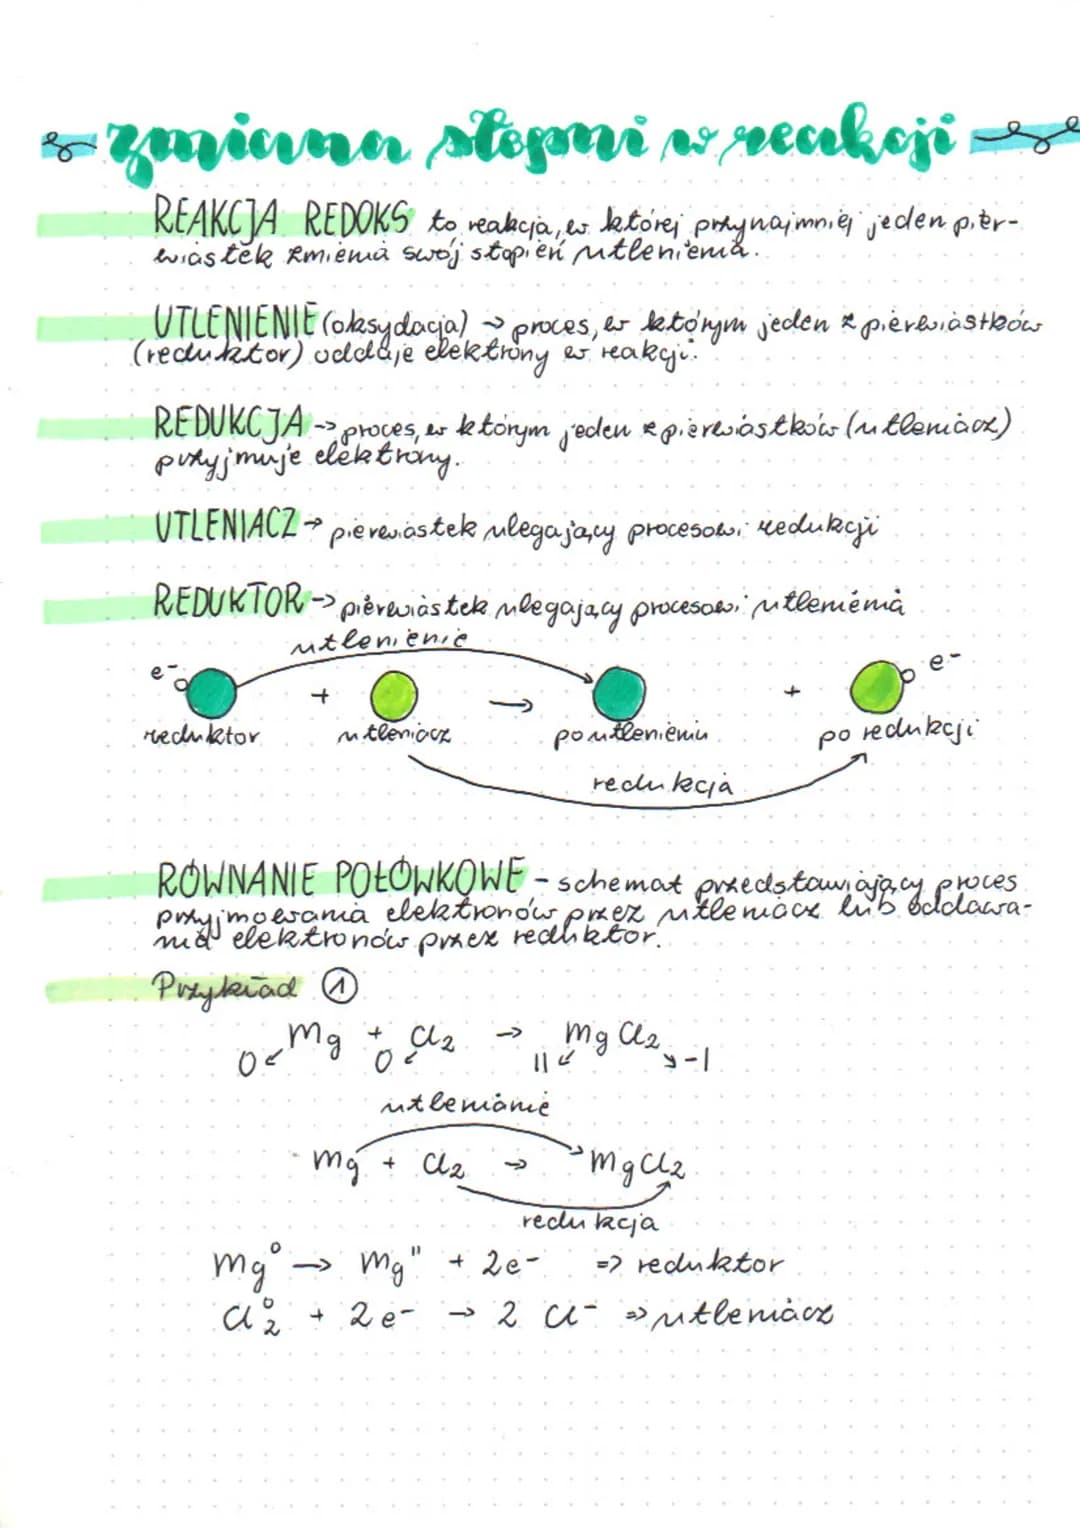 zmiana stopni w reakcji
REAKCJA REDOKS to reakcja, w której przynajmniej jeden pier-
wiastek zmienia swój stopień utlenienia.
UTLENIENIE (oksydacja) → proces, w którym jeden z pierwiastków
(reduktor) oddaje elektrony w reakcji.
REDUKCJA -> proces, w którym jeden z pierwiastków (utleniacz)
przyjmuje elektrony.
UTLENIACZ → pierwiastek ulegający procesowi redukcji
REDUKTOR -> pierwiastek ulegający procesowi utlenienia
utlenienie
e⁻ + → + e⁻
reduktor utleniacz po utlenieniu po redukcji
redukcja
RÓWNANIE POŁÓWKOWE - schemat przedstawiający proces
przyjmowania elektronów przez utleniacz lub oddawa-
nia elektronów przez reduktor.
Przykład ①
Mg + Cl₂ → MgCl₂
0 0 II -I
utlenianie
Mg + Cl₂ → MgCl₂
redukcja
Mg⁰ → Mg" + 2e- => reduktor
Cl₂⁰ + 2e- → 2 Cl⁻ => utleniacz